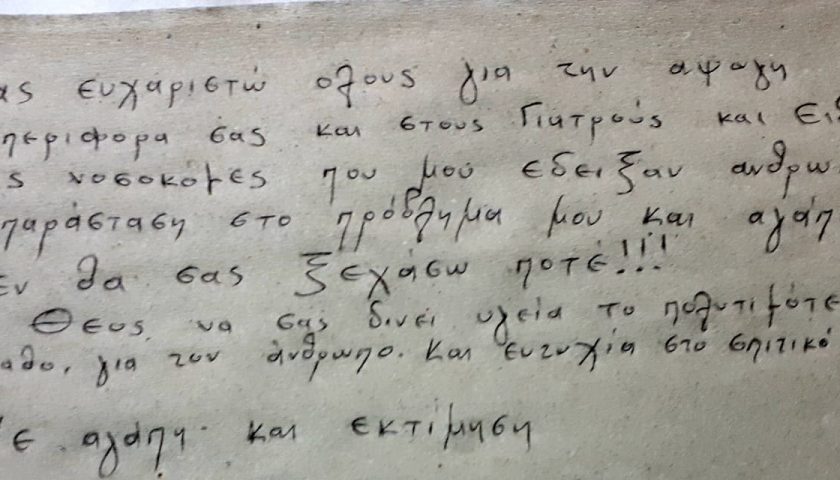 ας ευχάριστώ ολους για την αψογη
περιφορα σας και στους Γιατρούς και Ει
ς νοσοκόμες που μού εδειξαν ανθρω
παράσταση στο πρόβλημα μου και αγάπ
εν θα σας ξεχάσω ποτέ!!!
Θεος να σας δινει υγεία το πολυτιμότε
αθο, για τον άνθρωπο. Και ευτυχία στο σπιτικό
ε αγάπη και εκτίμηση